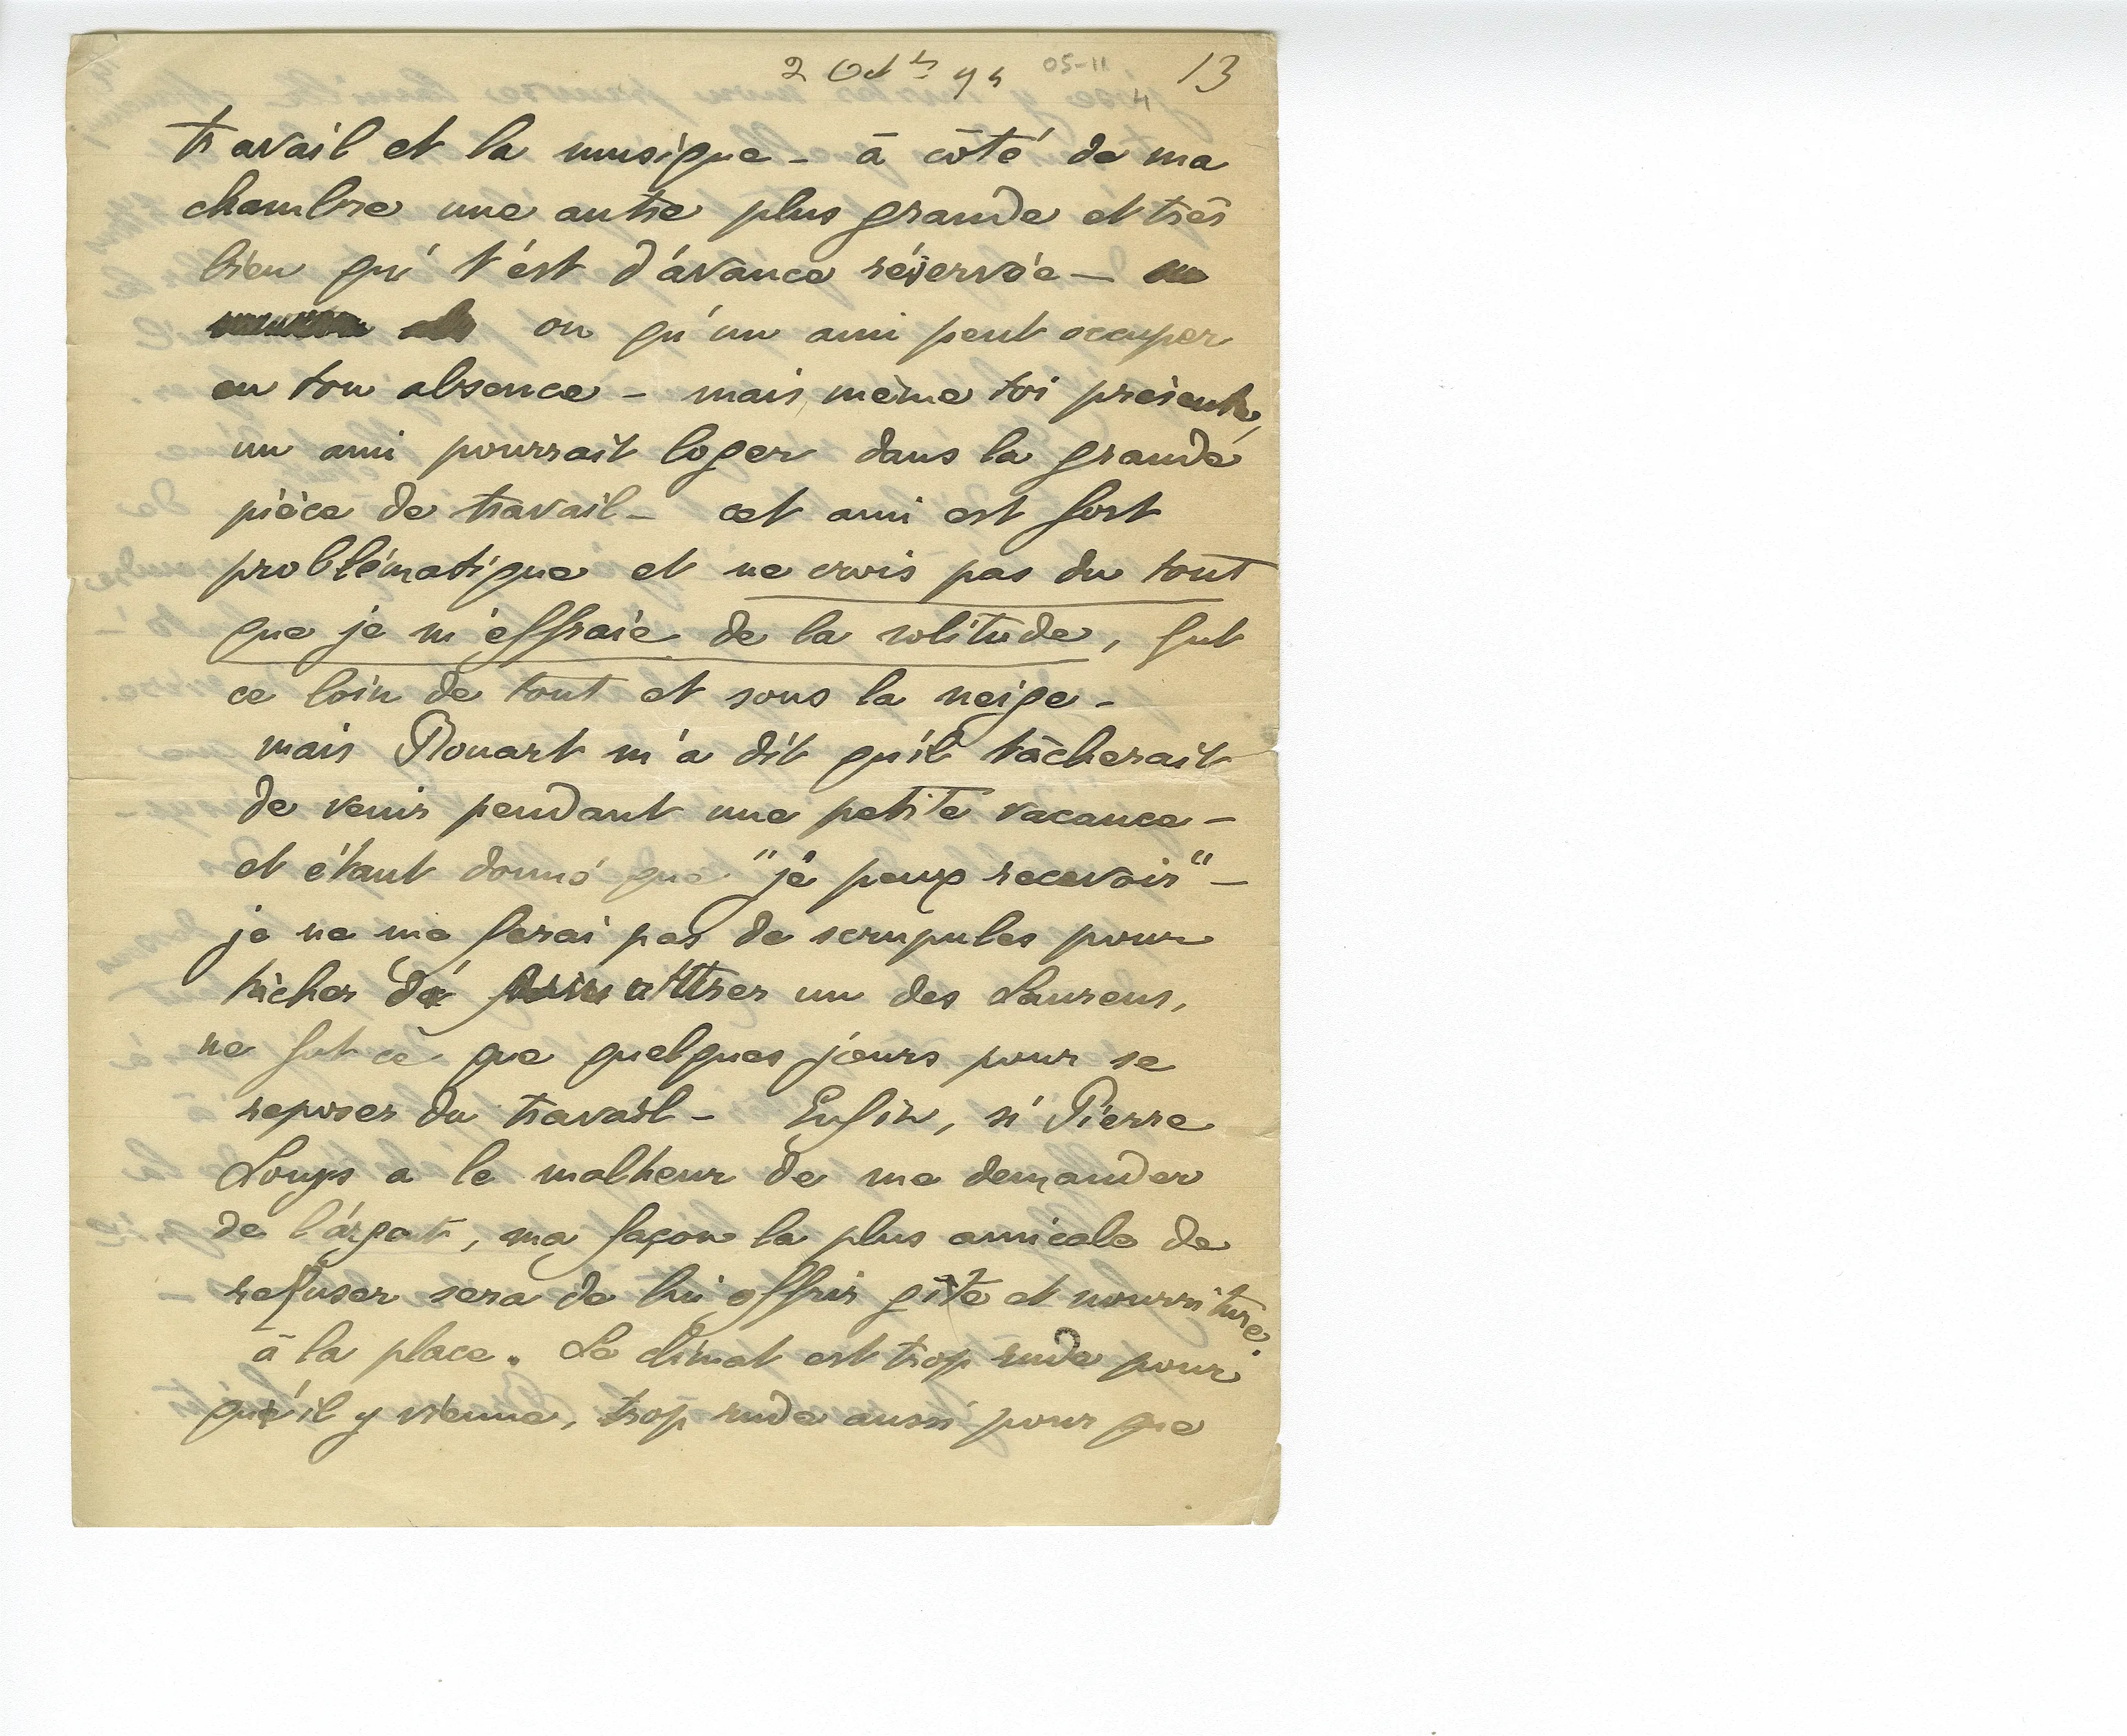 2 Oct 94 05-11 13
4
travail et la musique - à côté de ma
chambre une autre plus grande et très
bien qui t'est d'avance réservée -
ou qu'un ami peut occuper
en ton absence - mais même toi présente,
un ami pourrait loger dans la grande
pièce de travail - cet ami est fort
problématique et ne crois pas du tout
que je m'effraie de la solitude, fut
ce loin de tout et sous la neige -
mais Rouart m'a dit qu'il tâcherait
de venir pendant une petite vacance -
et étant donné que "je peux recevoir" -
je ne me ferai pas de scrupules pour
tâcher d' attirer un des Laurens,
ne fut ce que quelques jours pour se
reposer du travail - Enfin, si Pierre
Louÿs a le malheur de me demander
de l'argent, ma façon la plus amicale de
refuser sera de lui offrir gîte et nourriture
à la place. Le climat est trop rude pour
qu'il y vienne, trop rude aussi pour que